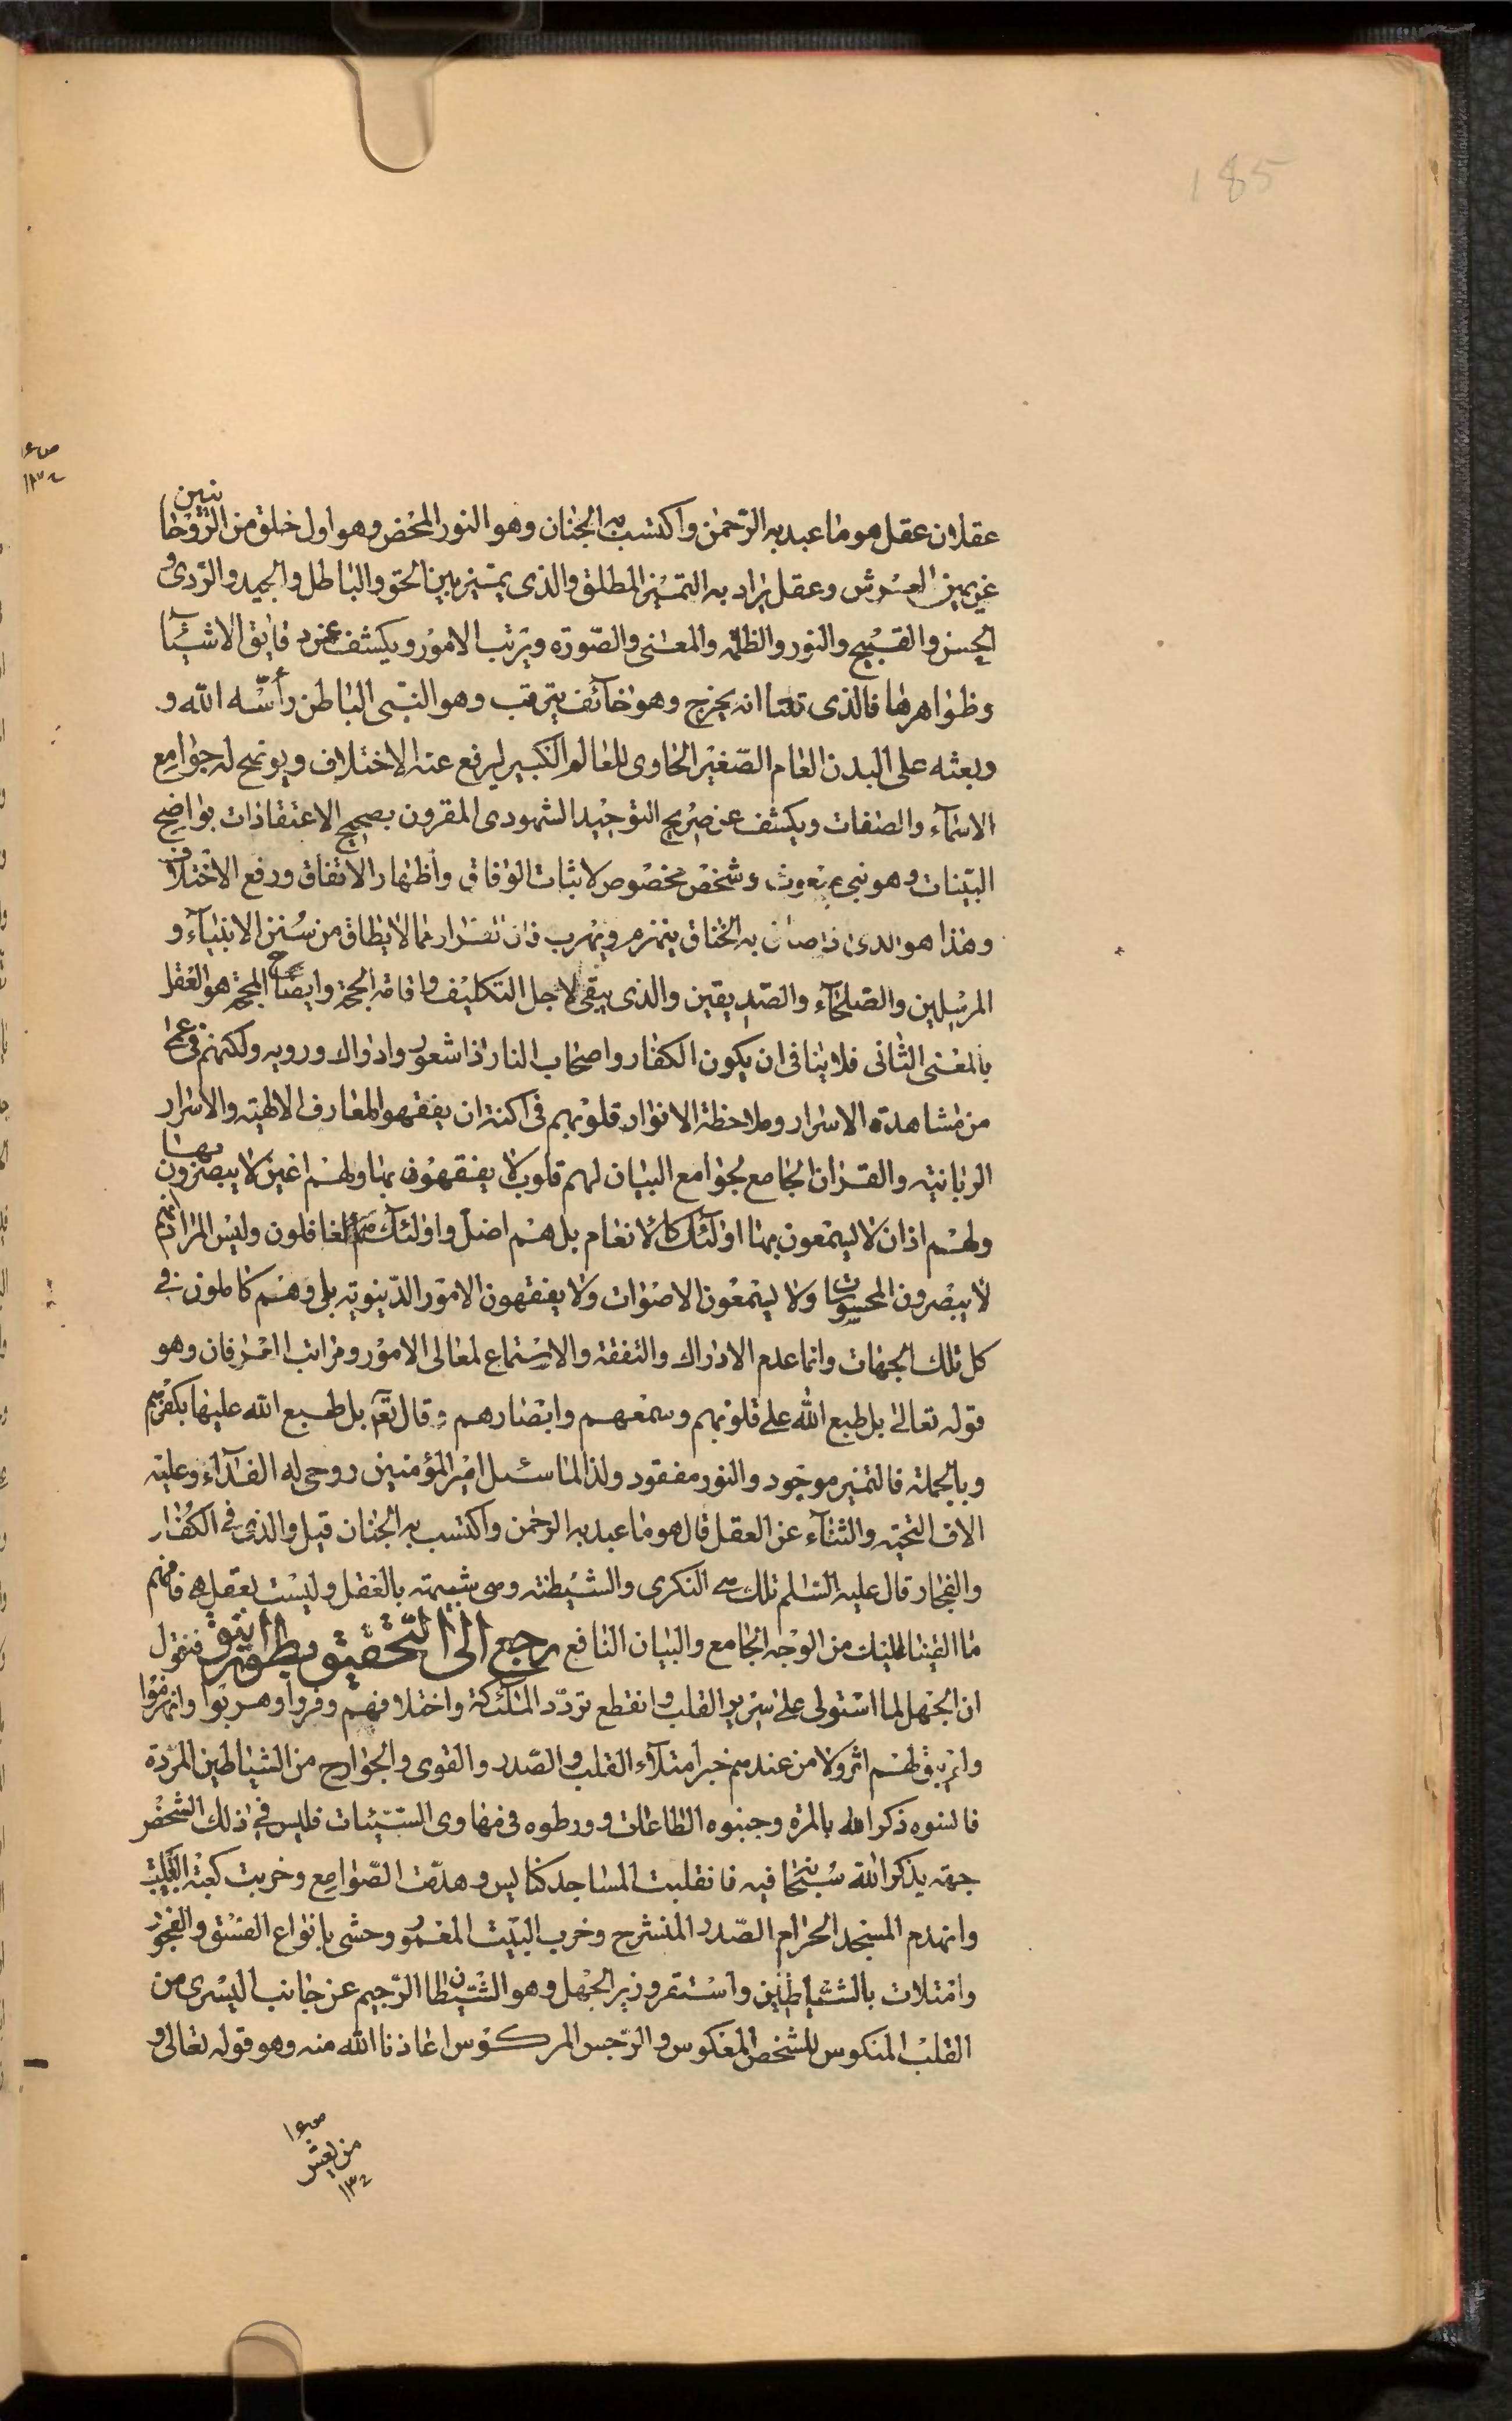 185
عقلان عقل هو ما عبد به الرّحمن واكتسب به الجنان وهو النور المحض وهو اول خلق من الرّوحانيين
عن يمين العرش وعقل يراد به التميّز المطلق والذى يميّز بين الحق والباطل والجيد والرّدى و
الحسن والقبيح والنور والظلمة والمعنى والصّورة ويرتب الامور ويكشف عن دقايق الاشيآء
وظواهرها فالذى قلنا انه يخرج وهو خآئف يترقب وهو النبّى الباطن
وبعثه على البدن العام الصّغير الحاوى للعالم الكبير ليرفع عنه الاختلاف ويوضح له جوامع
الاسمآء والصفات ويكشف عن صريح التوحيد الشهودى المقرون بصحيح الاعتقادات بواضح
البيّنات وهو نبى مبعوث وشخص مخصوص لاثبات الوفاق واظهار الاتفاق ورفع الاختلاف
وهذا هو الذى اذا ضاق به الخناق ينهزم ويهرب فان الفرار مما لا يطاق من سنن الانبيآء و
المرسلين والصّلحآء والصّديقين والذى يبقى لاجل التكليف واقامة الحجة وايضاح المحجة هو العقل
بالمعنى الثانى فلا ينافى ان يكون الكفار واصحاب النار ذا شعور وادراك وروية ولكنهم فى عمى
من مشاهدة الاسرار وملاحظة الانوار قلوبهم فى اكنة ان يفقهوا المعارف الالهية والاسرار
الربانية والقران الجامع لجوامع البيان لهم قلوب لا يفقهون بها ولهم اعين لا يبصرون بها
ولهم اذان لا يسمعون بها اولئك كالانعام بل هم اضل واولئك هم الغافلون وليس المراد انهم
لا يبصرون المحسوسات ولا يسمعون الاصوات ولا يفقهون الامور الدّنيوية بلى وهم كاملون فى
كل تلك الجهات وانما عدم الادراك والتفقه والاستماع لمعالى الامور ومراتب العرفان وهو
قوله تعالى بل طبع الله على قلوبهم وسمعهم وابصارهم وقال تعم بل طبع الله عليها بكفرهم
وبالجملة فالتميز موجود والنور مفقود ولذا لما سئل امير المؤمنين روحى له الفدآء وعليه
الاف التحية والثنآء عن العقل قال هو ما عبد به الرحمن واكتسب به الجنان قيل والذى فى الكفار
والفجار قال عليه السّلم تلك هى النكرى والشيطنة وهى شبيهة بالعقل وليست بعقل هه فافهم
ما القينا اليك من الوجه الجامع والبيان النافع رجع الى التّحقيق بطور انيق فنقول
ان الجهل لما استولى على سرير القلب وانقطع تردّد الملئكة واختلافهم وفروا وهربوا وانهزموا
ولم يبق لهم اثر ولا من عندهم خبر امتلآء القلب والصّدر والقوى والجوارح من الشياطين المردة
فانسوه ذكر الله بالمرة وجنبوه الطاعات وورطوه فى مهاوى السّيئات فليس فى ذلك الشخص
جهة يذكر الله سبحانه فيه فانقلبت المساجد كنايس وهدّمت الصّوامع وخربت كعبة القلب
وانهدم المسجد الحرام الصّدر المنشرح وخرب البيت المعمور وحشى بانواع الفسق والفجور
وامتلات بالشياطين واستقر وزير الجهل وهو الشّيطان الرّجيم عن جانب اليسرى من
القلب المنكوس للشخص المعكوس والرّجس المركوس اعاذنا الله منه وهو قوله تعالى و
من يعش